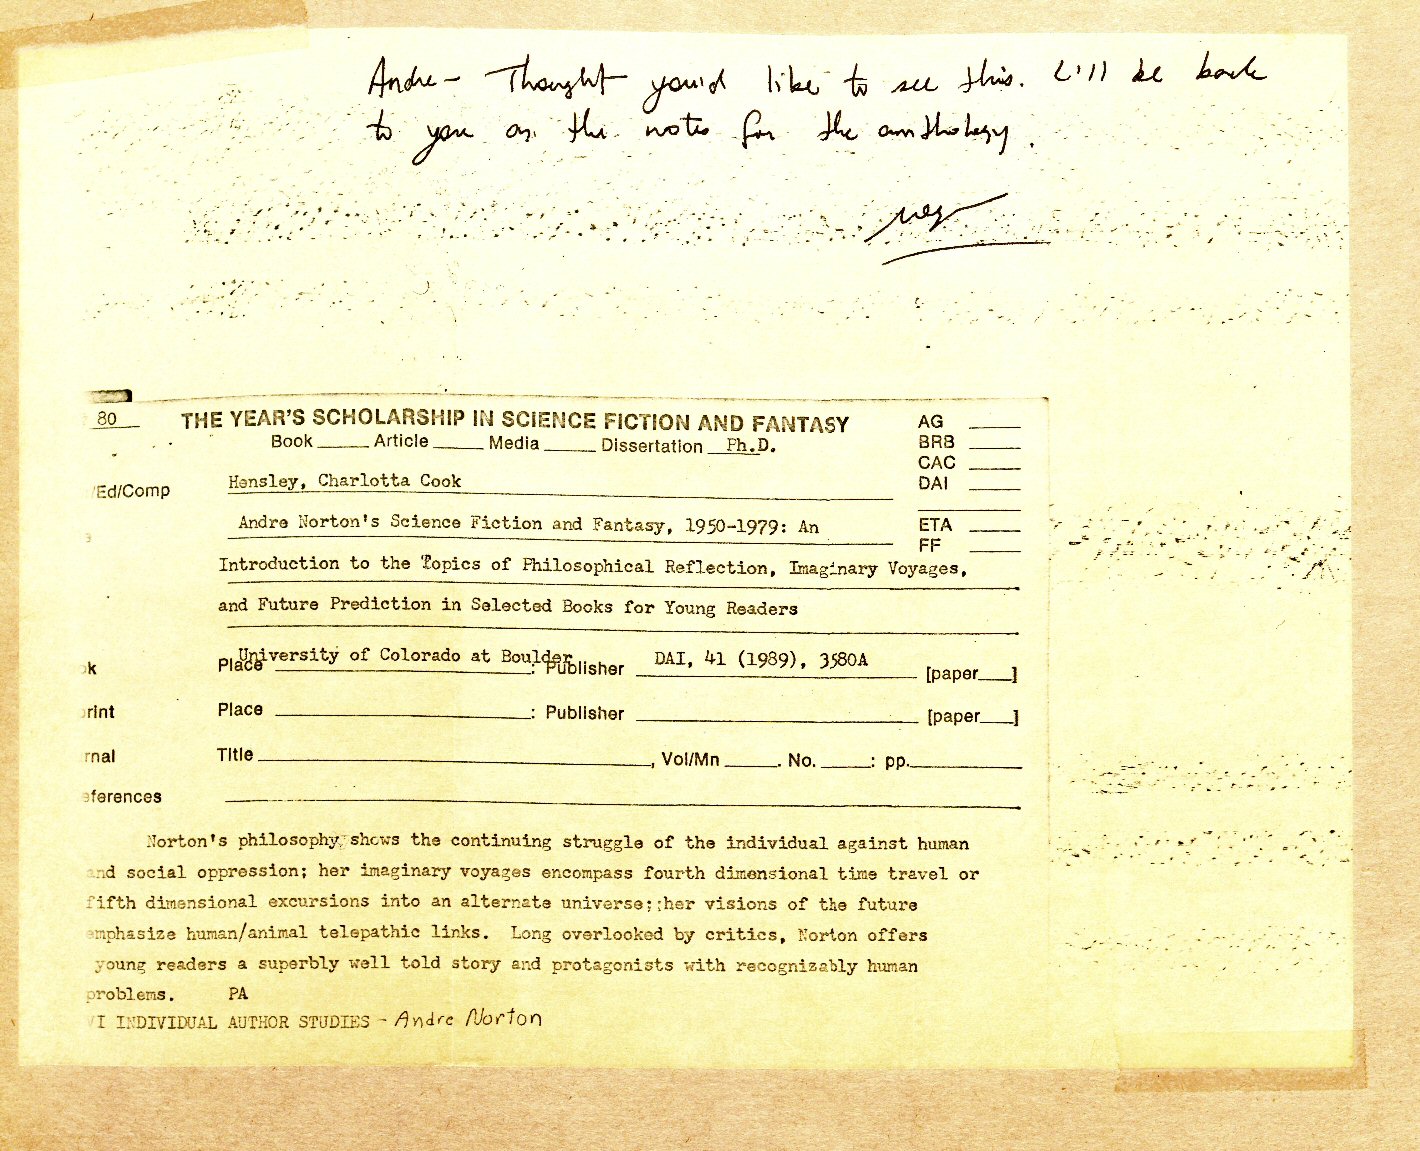 Andre – Thought you'd like to see this. I'll be back
to you on the notes for the anthology.
80 THE YEAR'S SCHOLARSHIP IN SCIENCE FICTION AND FANTASY AG ____
Book ____ Article ____ Media ____ Dissertation Ph.D. BRB ____
CAC ____
/Ed/Comp Hensley, Charlotta Cook DAI ____
Andre Norton's Science Fiction and Fantasy, 1950-1979: An ETA ____
FF ____
Introduction to the Topics of Philosophical Reflection, Imaginary Voyages,
and Future Prediction in Selected Books for Young Readers
ok Place University of Colorado at Boulder : Publisher DAI, 41 (1989), 3580A [paper____]
rint Place ____ : Publisher ____ [paper____]
rnal Title ____, Vol/Mn ____. No. ____: pp.____
eferences
Norton's philosophy shows the continuing struggle of the individual against human
and social oppression; her imaginary voyages encompass fourth dimensional time travel or
fifth dimensional excursions into an alternate universe; her visions of the future
emphasize human/animal telepathic links. Long overlooked by critics, Norton offers
young readers a superbly well told story and protagonists with recognizably human
problems. PA
VI INDIVIDUAL AUTHOR STUDIES - Andre Norton